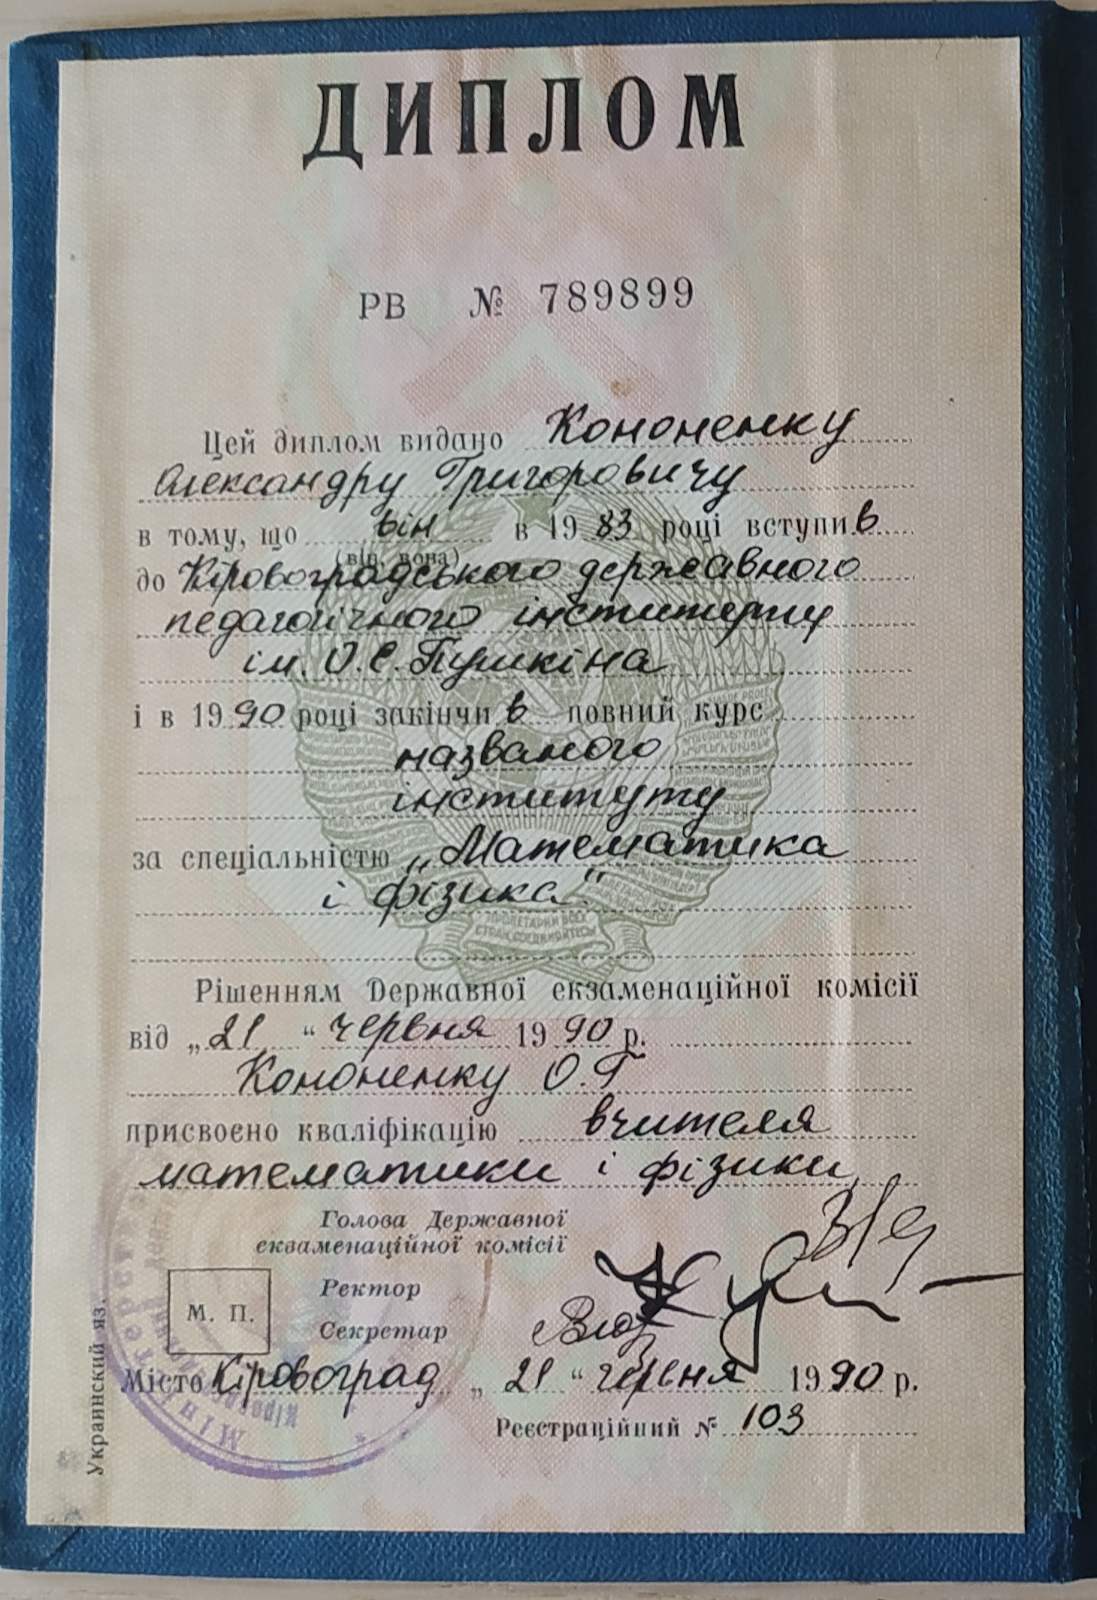 ДИПЛОМ
РВ № 789899
Цей диплом видано Кононенку
Олександру Григоровичу
в тому, що він в 1983 році вступив
(він, вона)
до Кіровоградського державного
педагогічного інституту
ім. О.С. Пушкіна
і в 1990 році закінчив повний курс
названого
інституту
за спеціальністю „Математика
і фізика"
ПРОЛЕТАРИИ ВСЕХ
СТРАН, СОЕДИНЯЙТЕСЬ!
Рішенням Державної екзаменаційної комісії
від „21" червня 1990 р.
Кононенку О.Г
присвоєно кваліфікацію вчителя
математики і фізики
Голова Державної
екзаменаційної комісії
Ректор
М. П.
Секретар
Місто Кіровоград „21" червня 1990 р.
Реєстраційний № 103
Украинский яз.